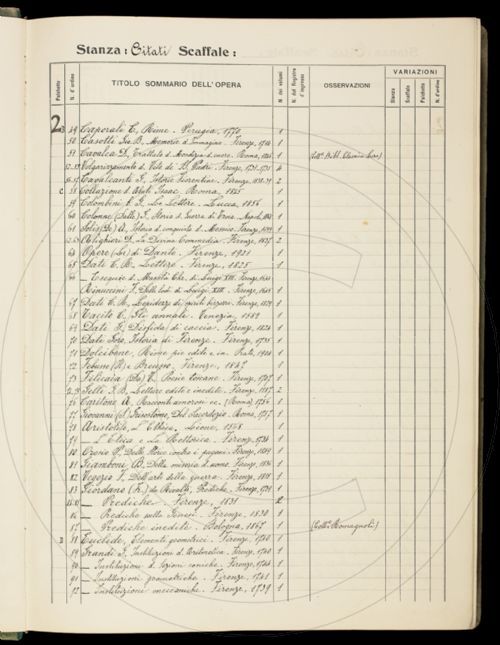 Stanza: Citati Scaffale:
Palchetto N. d'ordine TITOLO SOMMARIO DELL'OPERA N. dei volumi N. del Registro d'ingresso OSSERVAZIONI VARIAZIONI
Stanza Scaffale Palchetto N. d'ordine
2 49 Caporali C, Rime. Perugia, 1770 1
50 Casotti Gio B, Memorie d. Immagine. Firenze, 1714 1
51 Cavalca D, 1
Volgarizzamento d. Vite de' SS. Padri. Firenze, 1731-1735
Cavalcanti G, Istorie Fiorentine. Firenze, 1838-39 2
C 58 Collazione d. Abati Isaac. Roma, 1845 1
59 Colombini B. G. Le Lettere. Lucca, 1856 1
60 Colonne (Dalle) G, Storia d. Guerra di Troia. 1
61 Solis (De) A, Istoria d. conquista d. Messico. Firenze, 1699 1
Alighieri D, La Divina Commedia. Firenze, 1837 2
64 Opere (Le) di Dante. Firenze, 1921 1
65 Dati C. R, Lettere. Firenze, 1825 1
66 — Esequie d. Maestà Chr. di Luigi XIII. Firenze, 1644
Rinuccini T, Delle lodi di Luigi XIII. Firenze, 1645 1
67 Dati C. R, Lepidezze di spiriti bizzarri. Firenze, 1829 1
68 Tacito C, Gli annali. Venezia, 1582 1
69 Dati G, Disfida di caccia. Firenze, 1824 1
70 Dati Goro, Istoria di Firenze. Firenze, 1735 1
71 Dolcibene, Rime più edite e in. Prato, 1904 1
72 Febusso (Il) e Breusso. Firenze, 1847 1
73 Filicaia (Da) V, Poesie toscane. Firenze, 1707 1
Gelli G. B, Lettere edite e inedite. Firenze, 2
76 Caritone A, Racconti amorosi ec. (Roma) 1756 1
77 Giovanni (S) Grisostomo, Del Sacerdozio. Roma, 1757 1
78 Aristotile, L'Ethica. Lione, 1568 1
79 — L'Etica e La Rettorica. Firenze, 1734 1
80 Orosio P, Delle Storie contra i pagani. Firenze, 1849 1
81 Giamboni B, Della miseria d. uomo. Firenze, 1836 1
82 Vegezio F, Dell'arte della guerra. Firenze, 1815 1
83 Giordano (B.) da Rivalto, Prediche. Firenze, 1739 1
— Prediche. Firenze, 1831 2
86 — Prediche sulla Genesi. Firenze, 1830 1
87 — Prediche inedite. Bologna, 1867 1 (Coll. Romagnoli)
88 Euclide, Elementi geometrici. Firenze, 1740 1
89 Grandi G, Instituzioni d. Aritmetica. Firenze, 1740 1
90 — Instituzioni d. sezioni coniche. Firenze, 1744 1
91 — Instituzioni geometriche. Firenze, 1741 1
92 — Instituzioni meccaniche. Firenze, 1739 1